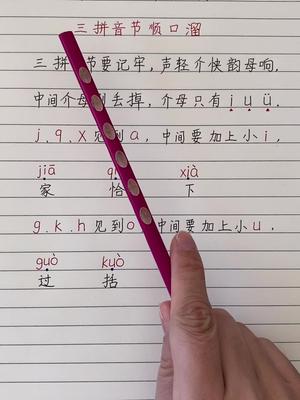 三拼音节顺口溜
三拼节要记牢,声轻介快韵母响,
中间介母丢掉,介母只有i u ü.
j.q.x见到a,中间要加上小i,
jiā xià
家 恰 下
g.k.h见到o中间要加上小u,
guò kuò
过 括